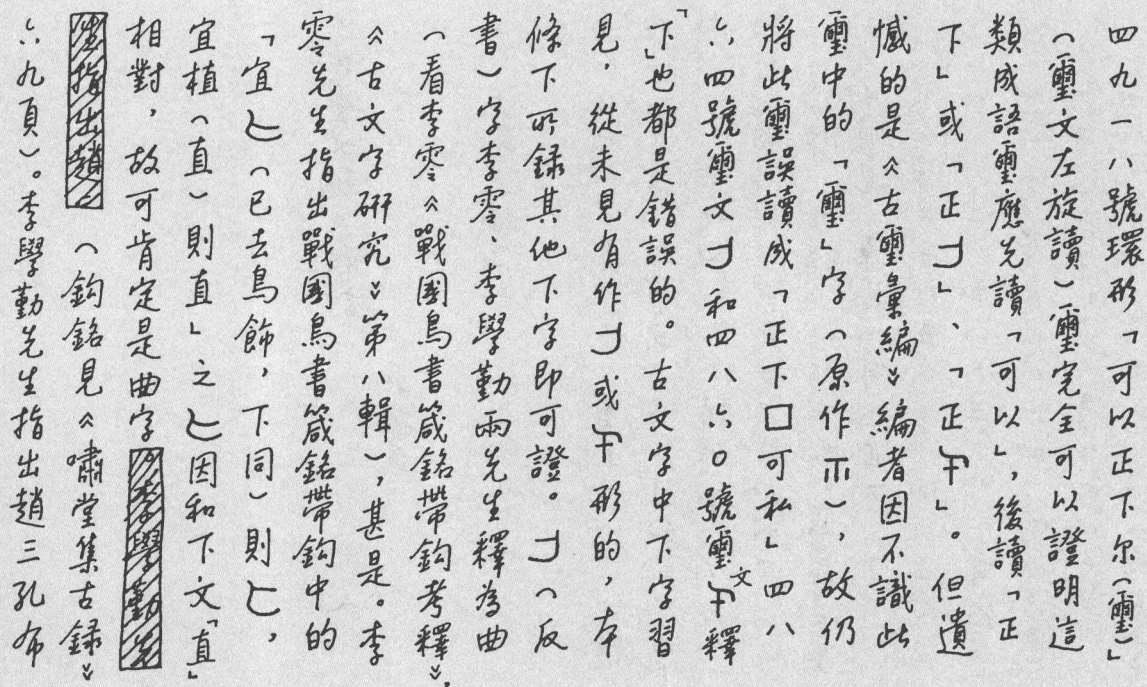 四九一八號環形「可以正下尔(璽)」
(璽文左旋讀)璽完全可以證明這
類成語璽應先讀「可以」,後讀「正
下」或「正𠃌」、「正」。但遺
憾的是《古璽彙編》編者因不識此
璽中的「璽」字(原作𠕁),故仍
將此璽誤讀成「正下口可私」四八
六四號璽文𠃌和四八六〇號璽文釋
「下」也都是錯誤的。古文字中下字習
見,從未見有作𠃌或形的,本
條下所錄其他下字即可證。𠃌(反
書)字李零、李學勤兩先生釋為曲
(看李零《戰國鳥書箴銘帶鈎考釋》,
《古文字研究》第八輯),甚是。李
零先生指出戰國鳥書箴銘帶鈎中的
「宜𠃊(已去鳥飾,下同)則𠃊,
宜植(直)則直」之𠃊因和下文「直」
相對,故可肯定是曲字
(鈎銘見《嘯堂集古錄》
六九頁)。李學勤先生指出趙三孔布